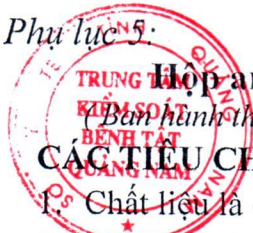 Phụ lục 5:
Hộp an
(Ban hành th
CÁC TIÊU CH
1. Chất liệu là
TRUNG TÂM
KIỂM SOÁT
BỆNH TẬT
QUẢNG NAM